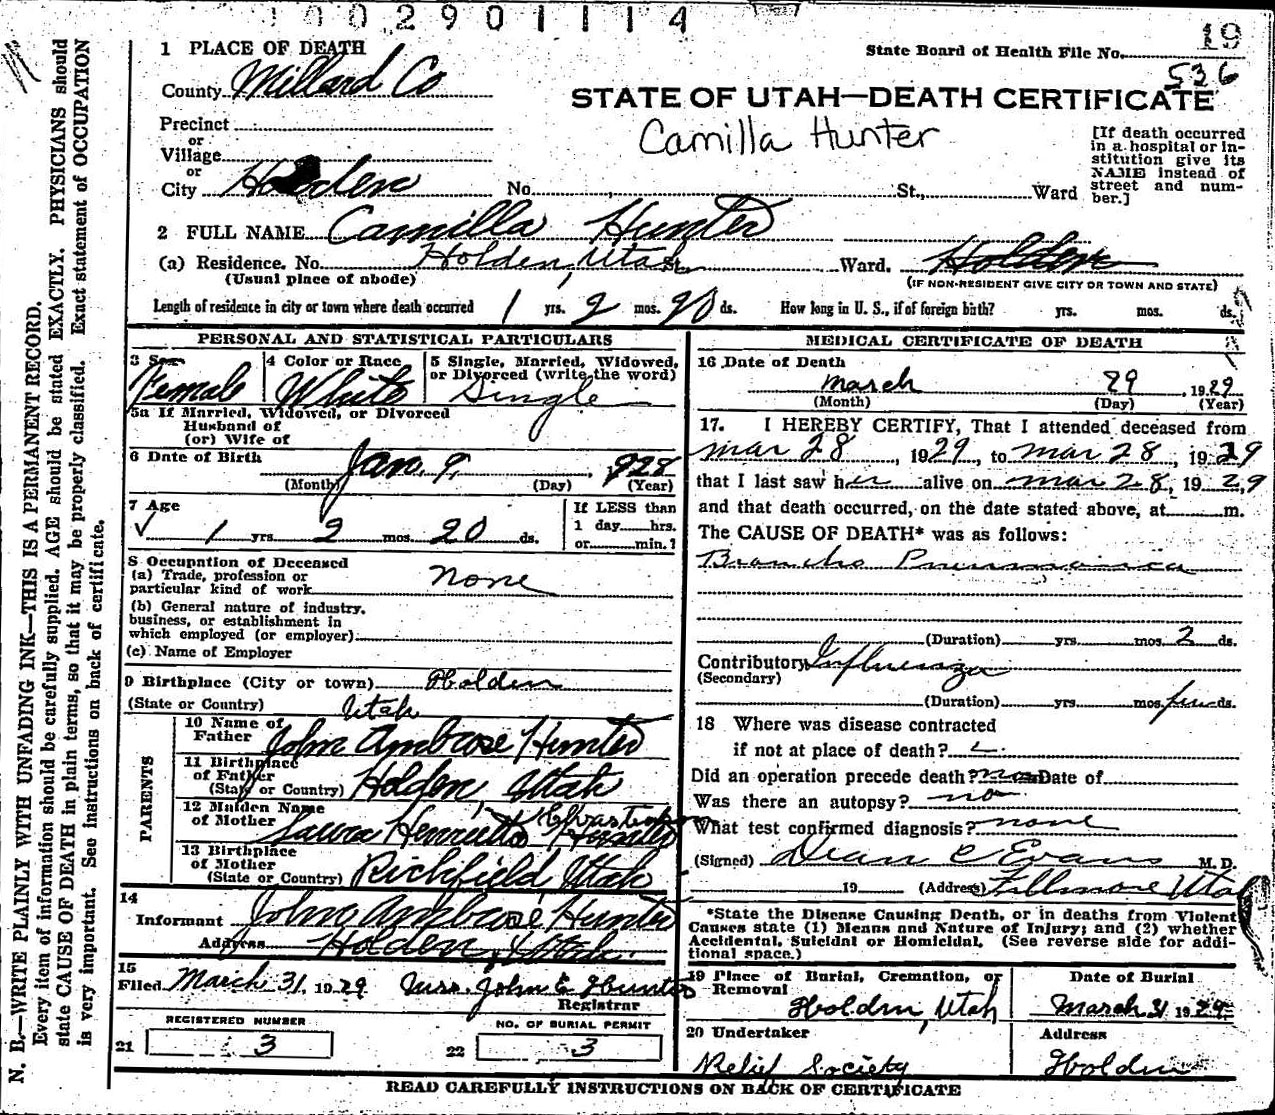 1002901114
19
1 PLACE OF DEATH
State Board of Health File No.
536
County Millard Co
STATE OF UTAH—DEATH CERTIFICATE
Camilla Hunter
Precinct
or
Village
or
City Holden No. St., Ward
[If death occurred
in a hospital or in-
stitution give its
NAME instead of
street and num-
ber.]
2 FULL NAME Camilla Hunter
(a) Residence. No. Holden, Utah St. Ward. Holden
(Usual place of abode)
(IF NON-RESIDENT GIVE CITY OR TOWN AND STATE)
Length of residence in city or town where death occurred 1 yrs. 2 mos. 20 ds. How long in U. S., if of foreign birth? yrs. mos. ds.
PERSONAL AND STATISTICAL PARTICULARS
3 Sex
Female
4 Color or Race
White
5 Single, Married, Widowed,
or Divorced (write the word)
Single
5a If Married, Widowed, or Divorced
Husband of
(or) Wife of
6 Date of Birth Jan. 9, 1928
(Month) (Day) (Year)
7 Age
1 yrs. 2 mos. 20 ds.
If LESS than
1 day......hrs.
or......min.?
8 Occupation of Deceased
(a) Trade, profession or
particular kind of work none
(b) General nature of industry,
business, or establishment in
which employed (or employer)
(c) Name of Employer
9 Birthplace (City or town) Holden
(State or Country) Utah
PARENTS
10 Name of
Father John Ambrose Hunter
11 Birthplace
of Father
(State or Country) Holden, Utah
12 Maiden Name
of Mother Laura Henrietta Hunter
13 Birthplace
of Mother
(State or Country) Richfield, Utah
14
Informant John Ambrose Hunter
Address Holden, Utah.
15
Filed March 31, 1929 Mrs. John E Hunter
Registrar
REGISTERED NUMBER
21 3
NO. OF BURIAL PERMIT
22 3
MEDICAL CERTIFICATE OF DEATH
16 Date of Death
March 29 1929
(Month) (Day) (Year)
17. I HEREBY CERTIFY, That I attended deceased from
Mar 28, 1929, to Mar 28, 1929
that I last saw her alive on Mar 28, 1929
and that death occurred, on the date stated above, at......m.
The CAUSE OF DEATH* was as follows:
Broncho Pneumonia
(Duration) yrs. mos. 2 ds.
Contributory Influenza
(Secondary)
(Duration) yrs. mos. few ds.
18 Where was disease contracted
if not at place of death?
Did an operation precede death? no Date of
Was there an autopsy? no
What test confirmed diagnosis? none
(Signed) Dean C Evans M. D.
19 (Address) Fillmore Utah
*State the Disease Causing Death, or in deaths from Violent
Causes state (1) Means and Nature of Injury; and (2) whether
Accidental, Suicidal or Homicidal. (See reverse side for addi-
tional space.)
19 Place of Burial, Cremation, or
Removal
Holden, Utah
Date of Burial
March 31 1929
20 Undertaker
Relief Society
Address
Holden
READ CAREFULLY INSTRUCTIONS ON BACK OF CERTIFICATE
N. B.—WRITE PLAINLY WITH UNFADING INK—THIS IS A PERMANENT RECORD.
Every item of information should be carefully supplied. AGE should be stated EXACTLY. PHYSICIANS should
state CAUSE OF DEATH in plain terms, so that it may be properly classified. Exact statement of OCCUPATION
is very important. See instructions on back of certificate.